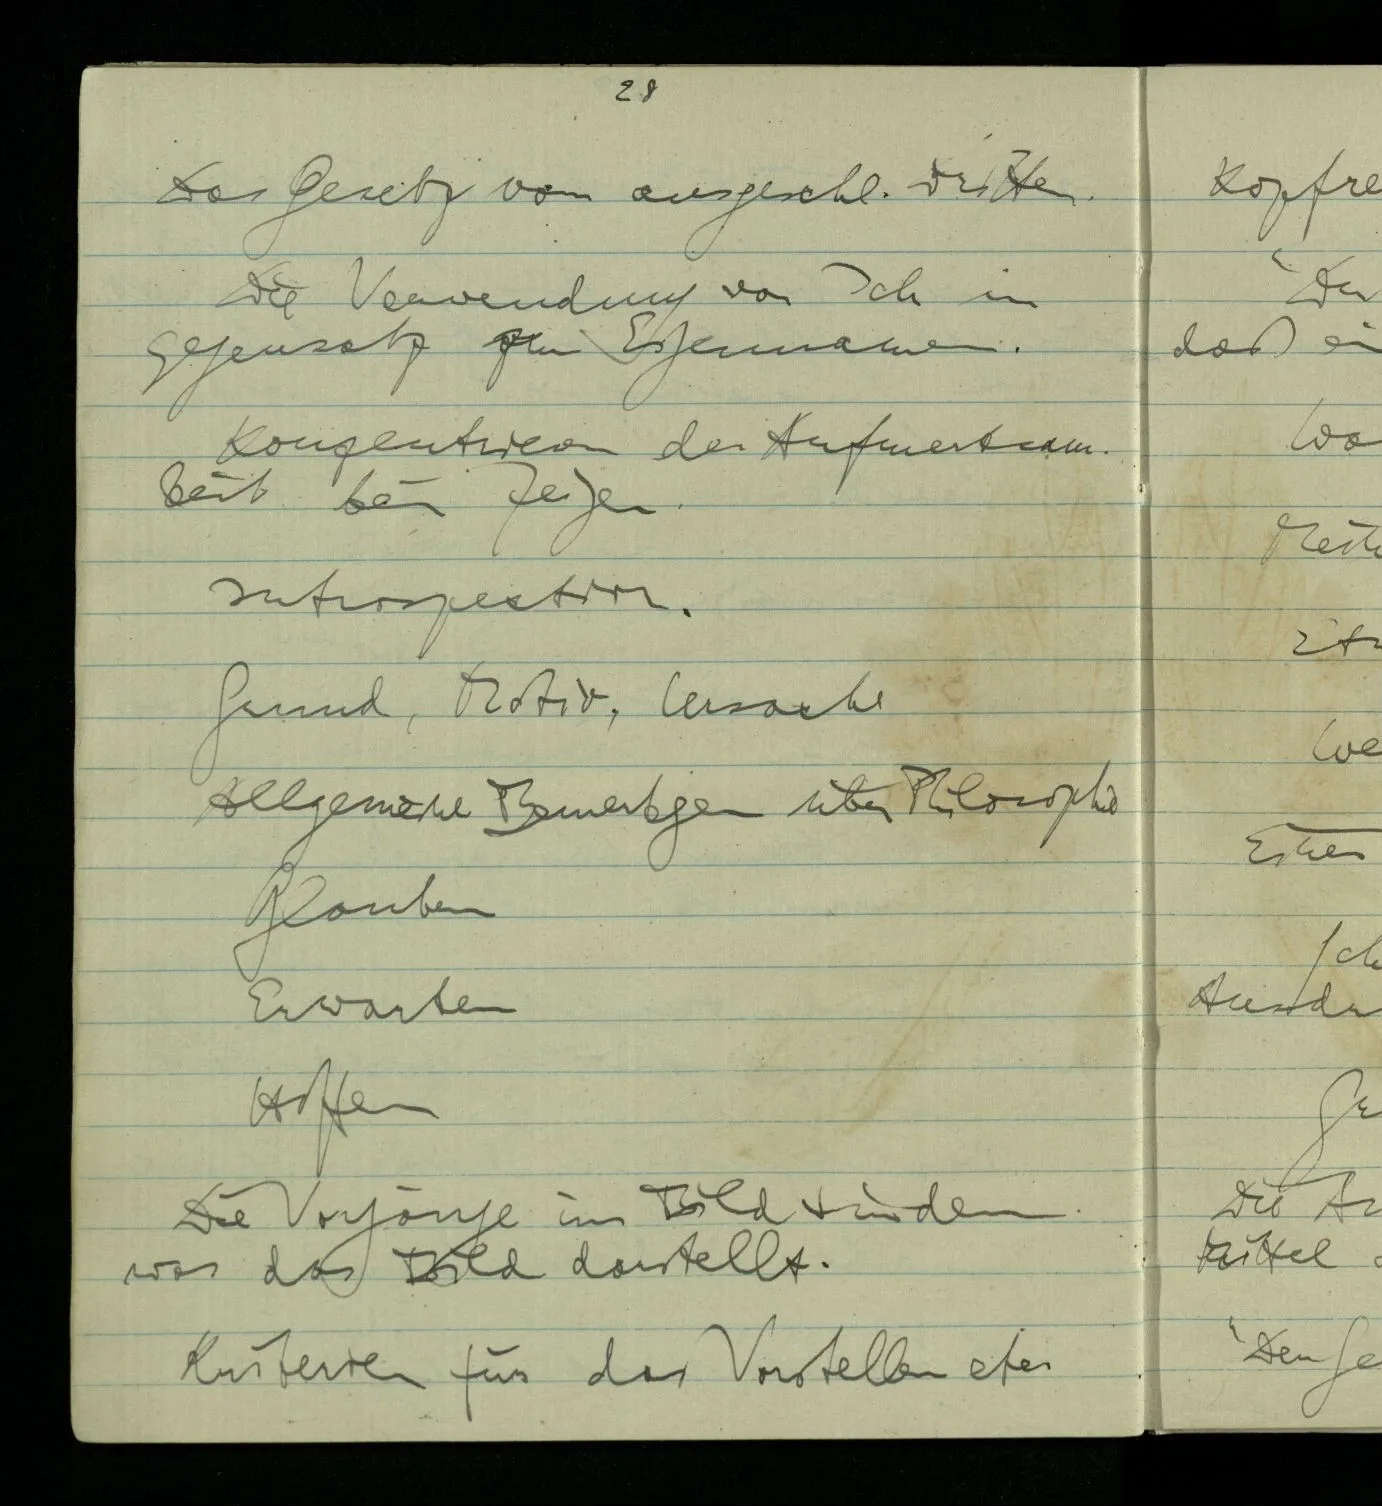 28
Das Gesetz vom ausgeschl. Dritten.
Die Verwendung von Ich im
Gegensatz zum Eigennamen.
Konzentrieren der Aufmerksam-
keit beim Zeigen.
Introspection.
Grund, Motiv, Ursache
Allgemeine Bemerkgen über Philosophie
Glauben
Erwarten
Hoffen
Die Vorgänge im Bild sind
was das Bild darstellt.
Kriterien für das Vorstellen etc.
Kopfre
"Der
daß ei
Ich
Ausdr
Ge
Mittel
"Den Ge